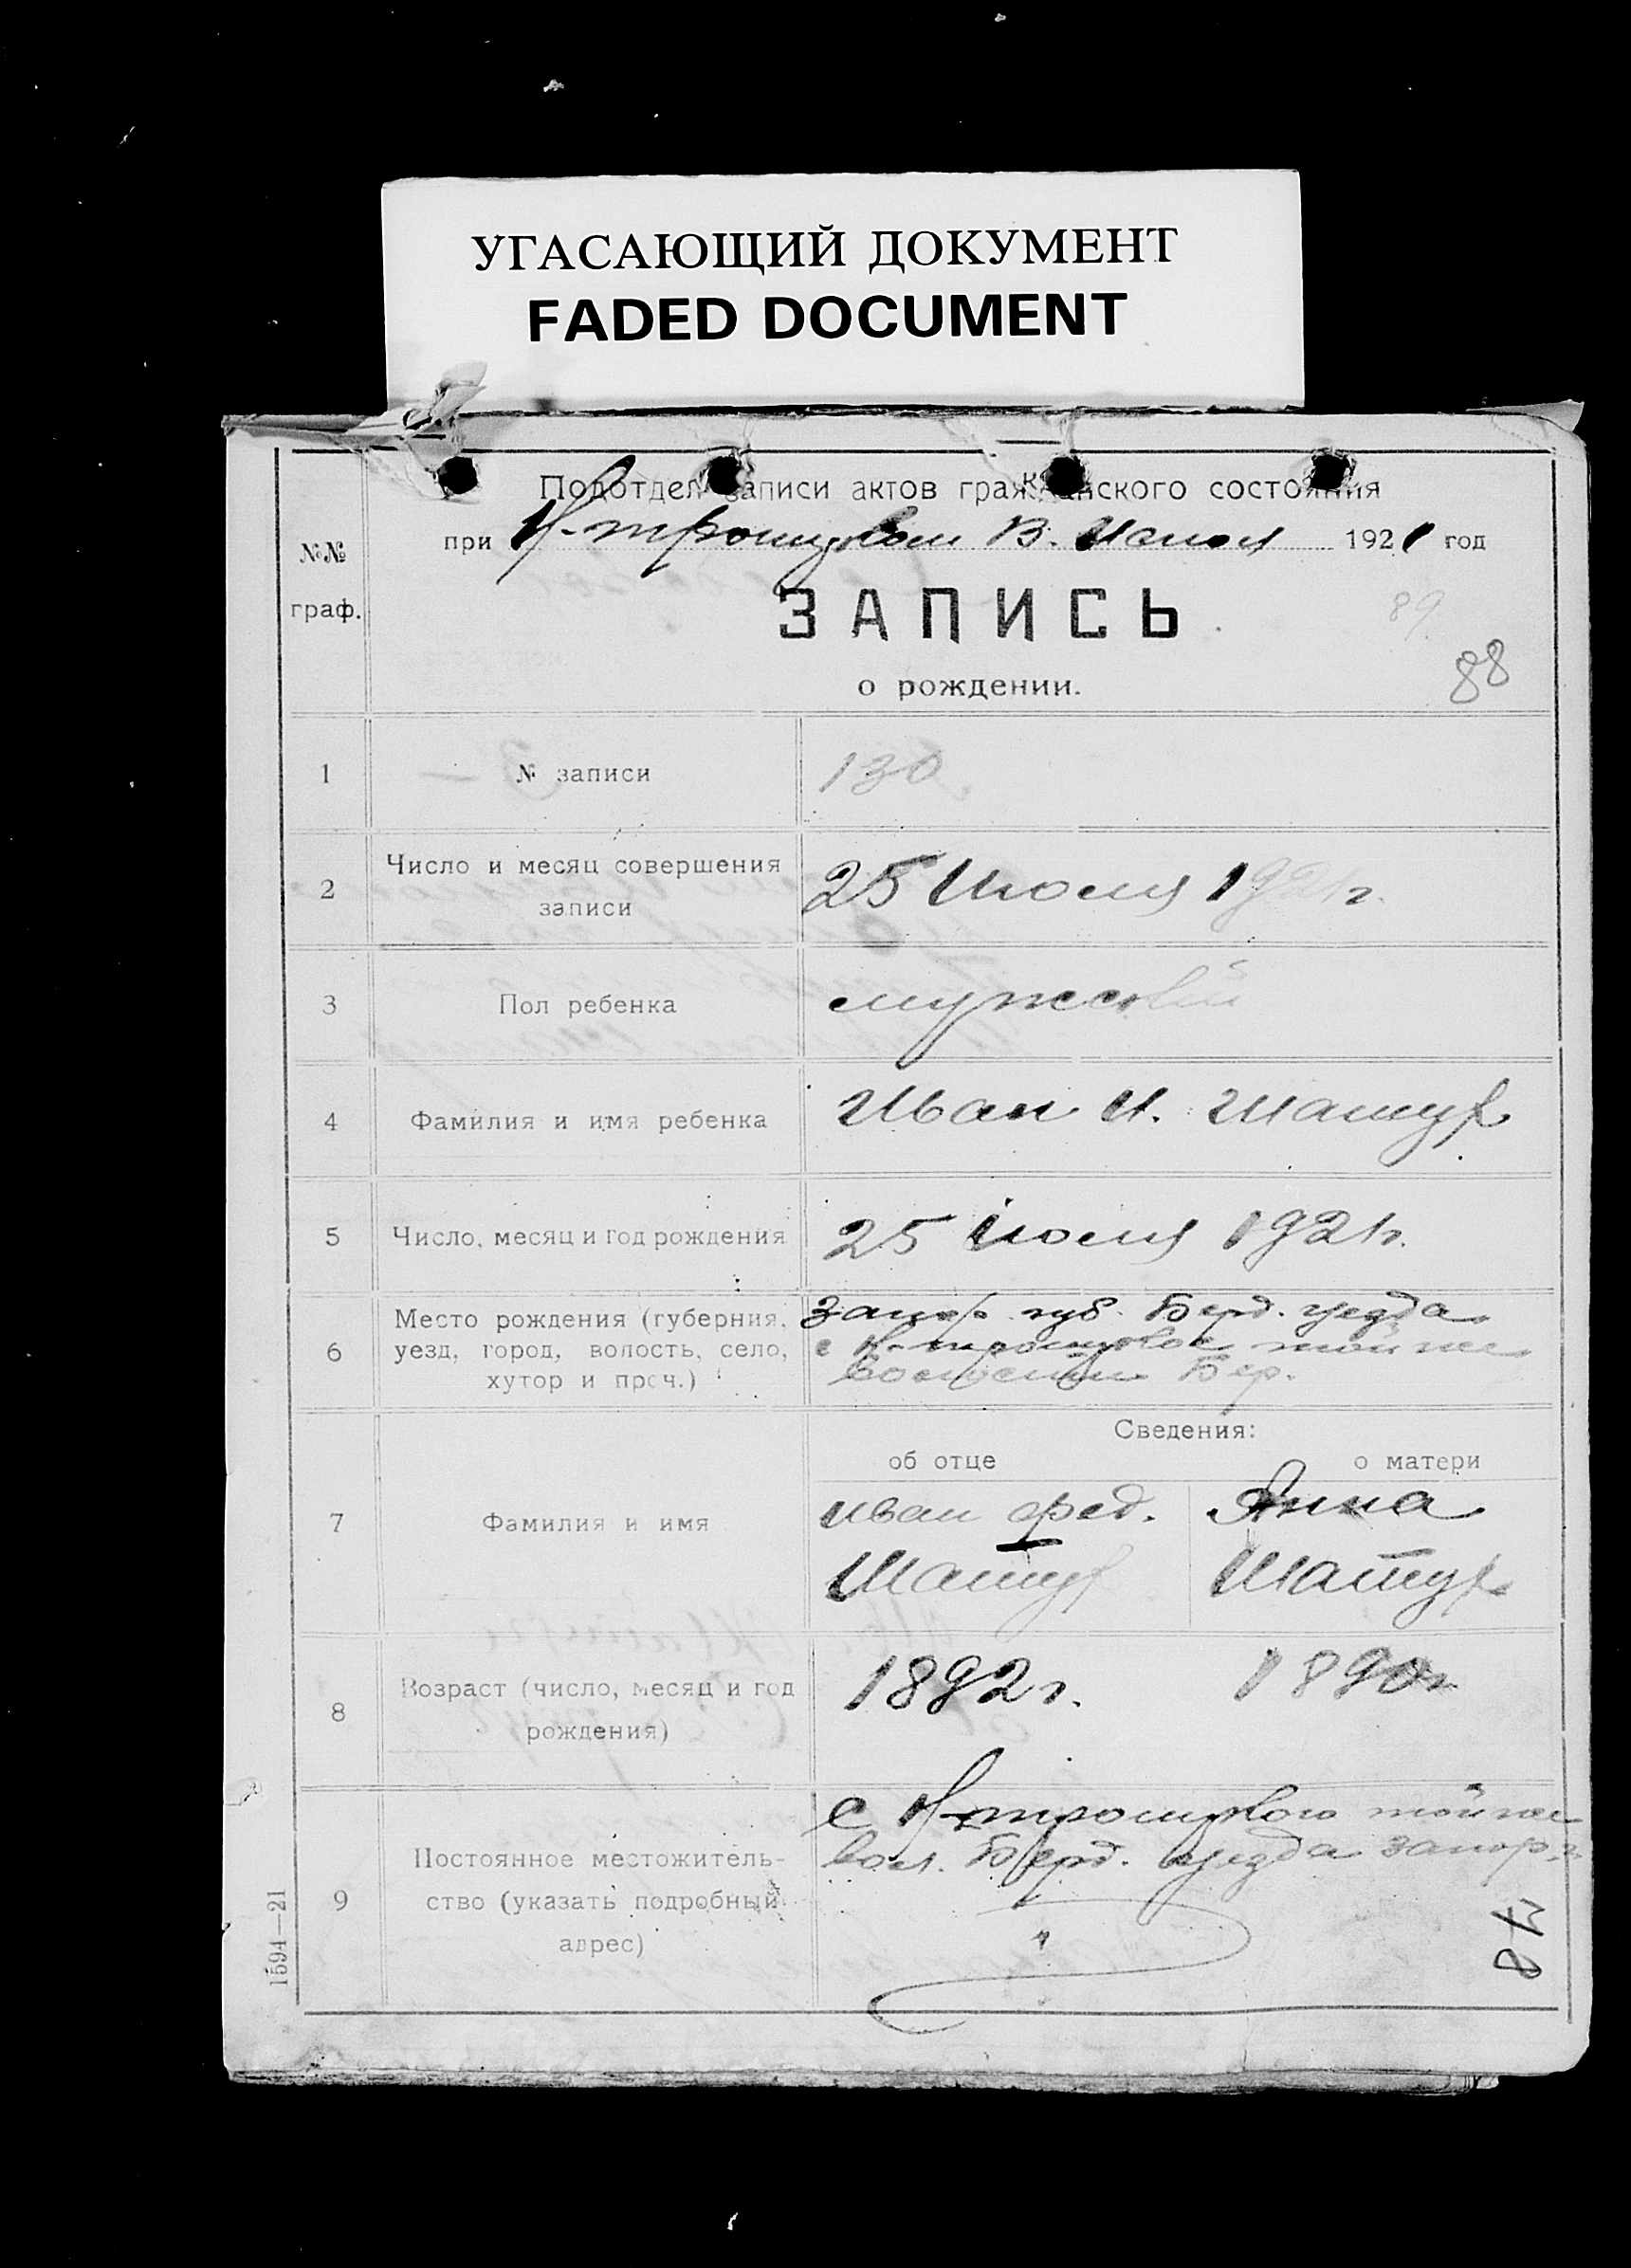 УГАСАЮЩИЙ ДОКУМЕНТ
FADED DOCUMENT
Подотдел записи актов гражданского состояния
при В. Испол 1921 год
№№
граф.
ЗАПИСЬ
89
о рождении.
88
1 № записи 130
2 Число и месяц совершения записи 25 Июля 1921 г.
3 Пол ребенка мужской
4 Фамилия и имя ребенка Иван И. Шатур
5 Число, месяц и год рождения 25 июля 1921 г.
6 Место рождения (губерния, уезд, город, волость, село, хутор и проч.)
Запор. губ. Берд. уезда
с той же
Сведения:
об отце о матери
7 Фамилия и имя
Иван Фед. Анна
Шатур Шатур
8 Возраст (число, месяц и год рождения) 1892 г. 1890 г.
9 Постоянное местожитель-
ство (указать подробный
адрес)
с той же
вол. Берд. уезда Запор. г.
1594—21